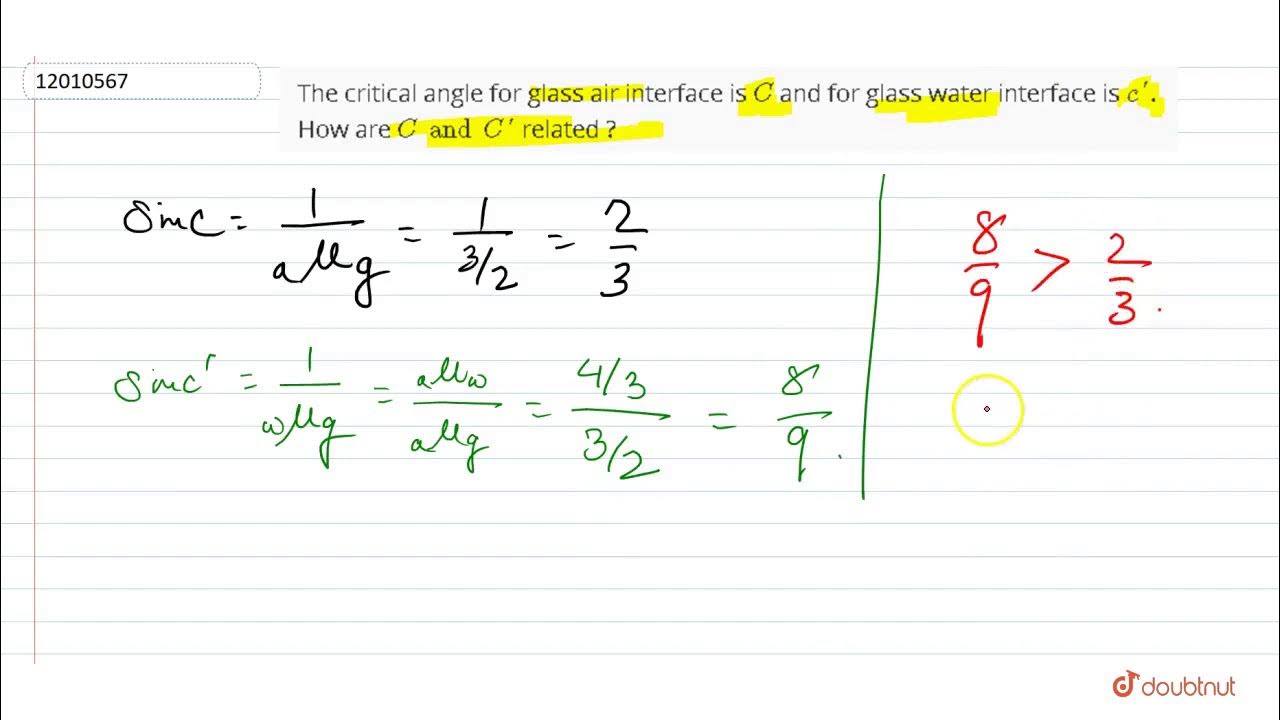 12010567
The critical angle for glass air interface is C and for glass water interface is c′.
How are C and C′ related ?
Sinc = 1/aμg = 1/3/2 = 2/3
Sinc' = 1/wμg = aμw/aμg = 4/3/3/2 = 8/9.
8/9 > 2/3.
doubtnut